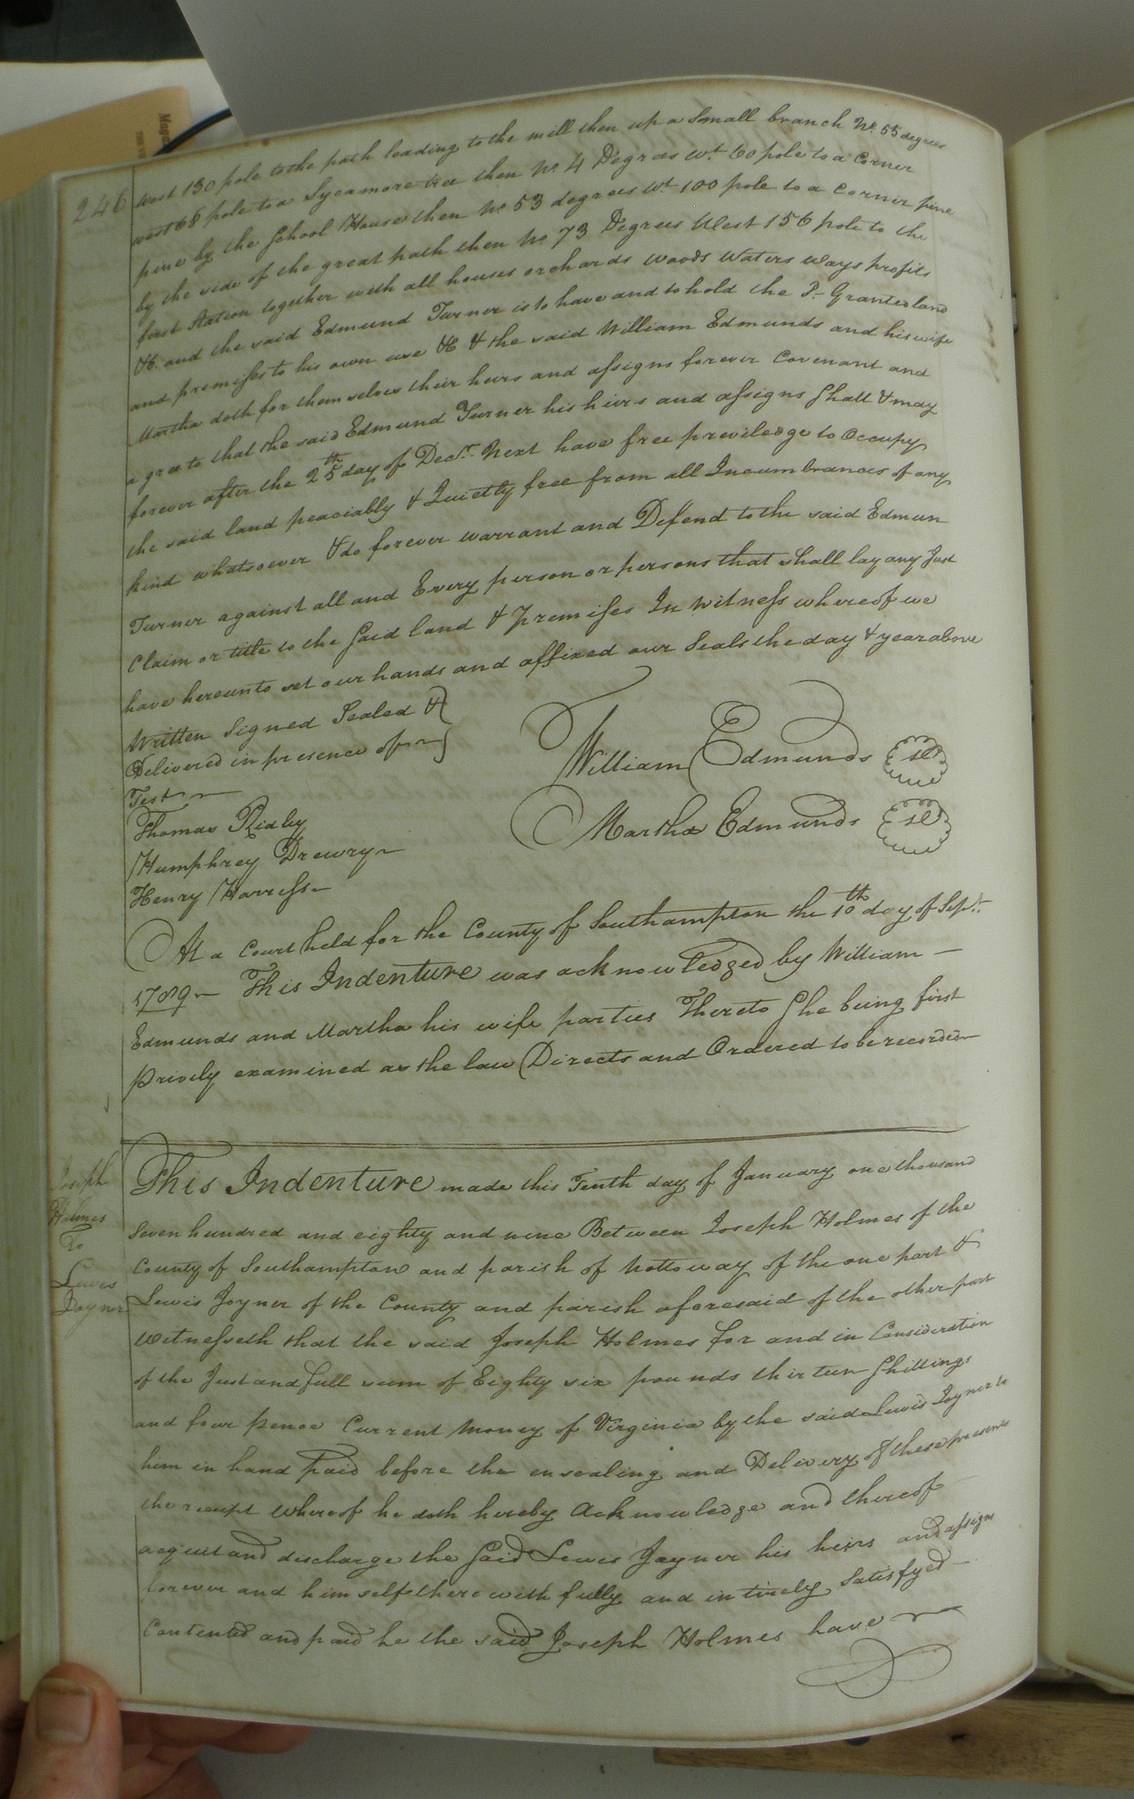 246
west 130 pole to the path leading to the mill then up a Small branch No. 55 degrees
west 68 pole to a Sycamore tree then No 4 Degrees Wt 60 pole to a Corner
pine by the School House then No 53 degrees Wt 100 pole to a Corner pine
by the side of the great path then No 73 Degrees West 156 pole to the
first Station together with all houses orchards woods Waters ways profits
&c and the said Edmund Turner is to have and to hold the P. Granted land
and premises to his own use &c & the said William Edmunds and his wife
Martha doth for themselves their heirs and assigns forever Covenant and
agree to that the said Edmund Turner his heirs and assigns Shall & may
forever after the 25th day of Decr. Next have free priviledge to Occupy
the said land peaciably & Quietly free from all Incumbrances of any
kind whatsoever & do forever warrant and Defend to the said Edmun
Turner against all and Every person or persons that shall lay any Just
Claim or title to the Said land & Premises In Witness whereof we
have hereunto set our hands and affixed our Seals the day & year above
Written Signed Sealed &
Delivered in presence of
William Edmunds sl
Martha Edmunds sl
Test
Thomas Ridley
Humphrey Drewry
Henry Harriss
At a Court held for the County of Southampton the 10th day of Sept.
1789 This Indenture was acknowledged by William
Edmunds and Martha his wife parties Thereto She being first
privily examined as the law Directs and Ordered to be recorded
Joseph
Holmes
To
Lewis
Joyner
This Indenture made this Tenth day of January one thousand
Seven hundred and eighty and nine Between Joseph Holmes of the
County of Southampton and parish of Nottoway of the one part &
Lewis Joyner of the County and parish aforesaid of the other part
Witnesseth that the said Joseph Holmes for and in Consideration
of the Just and full sum of Eighty six pounds thirteen Shillings
and four pence Current Money of Virginia by the said Lewis Joyner to
him in hand paid before the ensealing and Delivery of these presents
the receipt whereof he doth hereby Acknowledge and thereof
acquit and discharge the Said Lewis Joyner his heirs and assigns
forever and himself therewith fully and intirely Satisfyed
Contented and paid he the said Joseph Holmes have